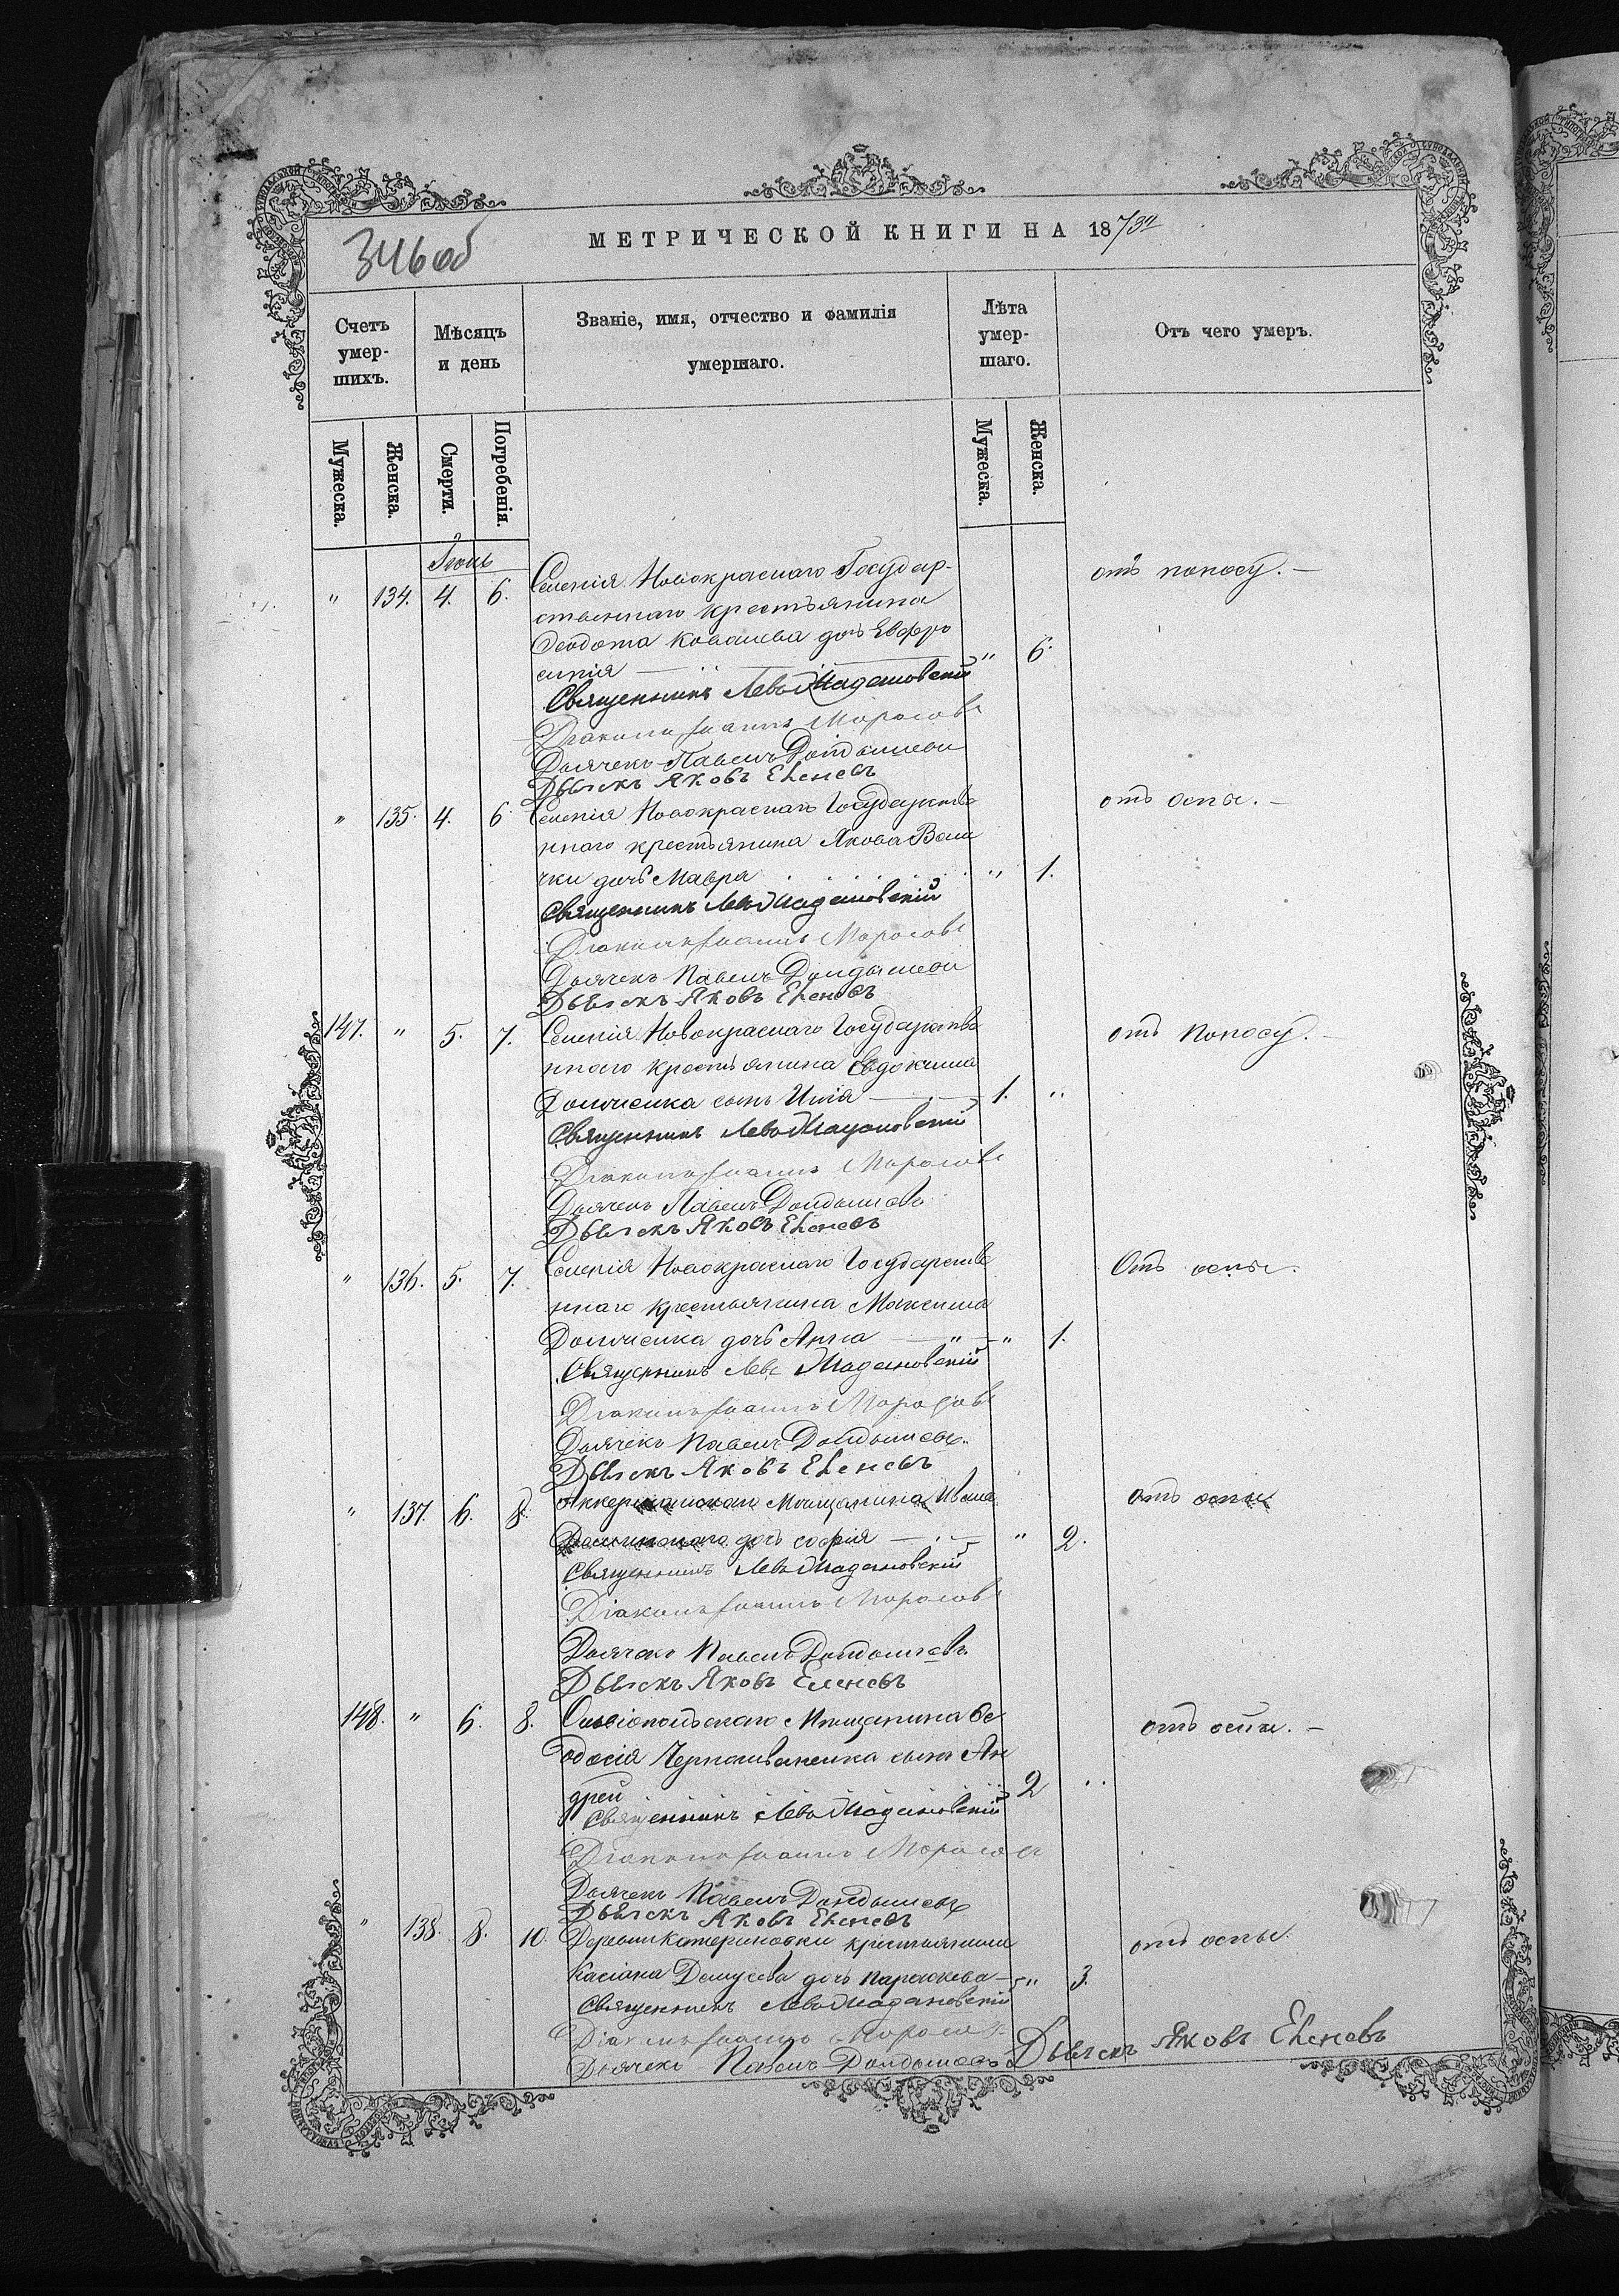 346 об
МЕТРИЧЕСКОЙ КНИГИ НА 1873й
Счетъ умер-шихъ.
Мѣсяцъ и день
Званіе, имя, отчество и фамилія умершаго.
Лѣта умер-шаго.
Отъ чего умеръ.
Мужеска.
Женска.
Смерти.
Погребенія.
Мужеска.
Женска.
Іюнь
" 134. 4. 6. Селенія Новокраснаго Государ- отъ поносу. —
ственнаго крестьянина
Ѳеодота Ковалева дочь Евфро
синія — " 6.
Священникъ Левъ Мадановскій
Діаконъ Іоаннъ Моросовъ
Дьячекъ Павелъ
Дьячекъ Яковъ Еленевъ
" 135. 4. 6 Селенія Новокраснаго Государстве отъ оспы. —
ннаго крестьянина Якова
чки дочь Мавра " 1.
Священникъ Левъ Мадановскій
Діаконъ Іоаннъ Моросовъ
Дьячекъ Павелъ
Дьячекъ Яковъ Еленевъ
147. " 5. 7. Селенія Новокраснаго Государстве отъ поносу. —
ннаго крестьянина Евдокима
сынъ Илія — 1. "
Священникъ Левъ Мадановскій
Діаконъ Іоаннъ Моросовъ
Дьячекъ Павелъ
Дьячекъ Яковъ Еленевъ
" 136. 5. 7. Селенія Новокраснаго Государстве Отъ оспы.
ннаго крестьянина Максима
дочь Анна — " — " 1.
Священникъ Левъ Мадановскій
Діаконъ Іоаннъ Моросовъ
Дьячекъ Павелъ
Дьячекъ Яковъ Еленевъ
" 137. 6. 8. Аккерманскаго Мѣщанина Ивана отъ оспы
дочь софія — " 2.
Священникъ Левъ Мадановскій
Діаконъ Іоаннъ Моросовъ
Дьячекъ Павелъ
Дьячекъ Яковъ Еленевъ
148. " 6. 8. Ольвіопольскаго Мѣщанина Ѳе отъ оспы. —
одосія Черноиваненка сынъ Ан
дрей 2 "
Священникъ Левъ Мадановскій
Діаконъ Іоаннъ Моросовъ
Дьячекъ Павелъ
Дьячекъ Яковъ Еленевъ
" 138. 8. 10. Деревни Катериновки крестьянина отъ оспы.
Касіана дочь Параскева — " 3.
Священникъ Левъ Мадановскій
Діаконъ Іоаннъ Моросовъ
Дьячекъ Павелъ Дьячекъ Яковъ Еленевъ